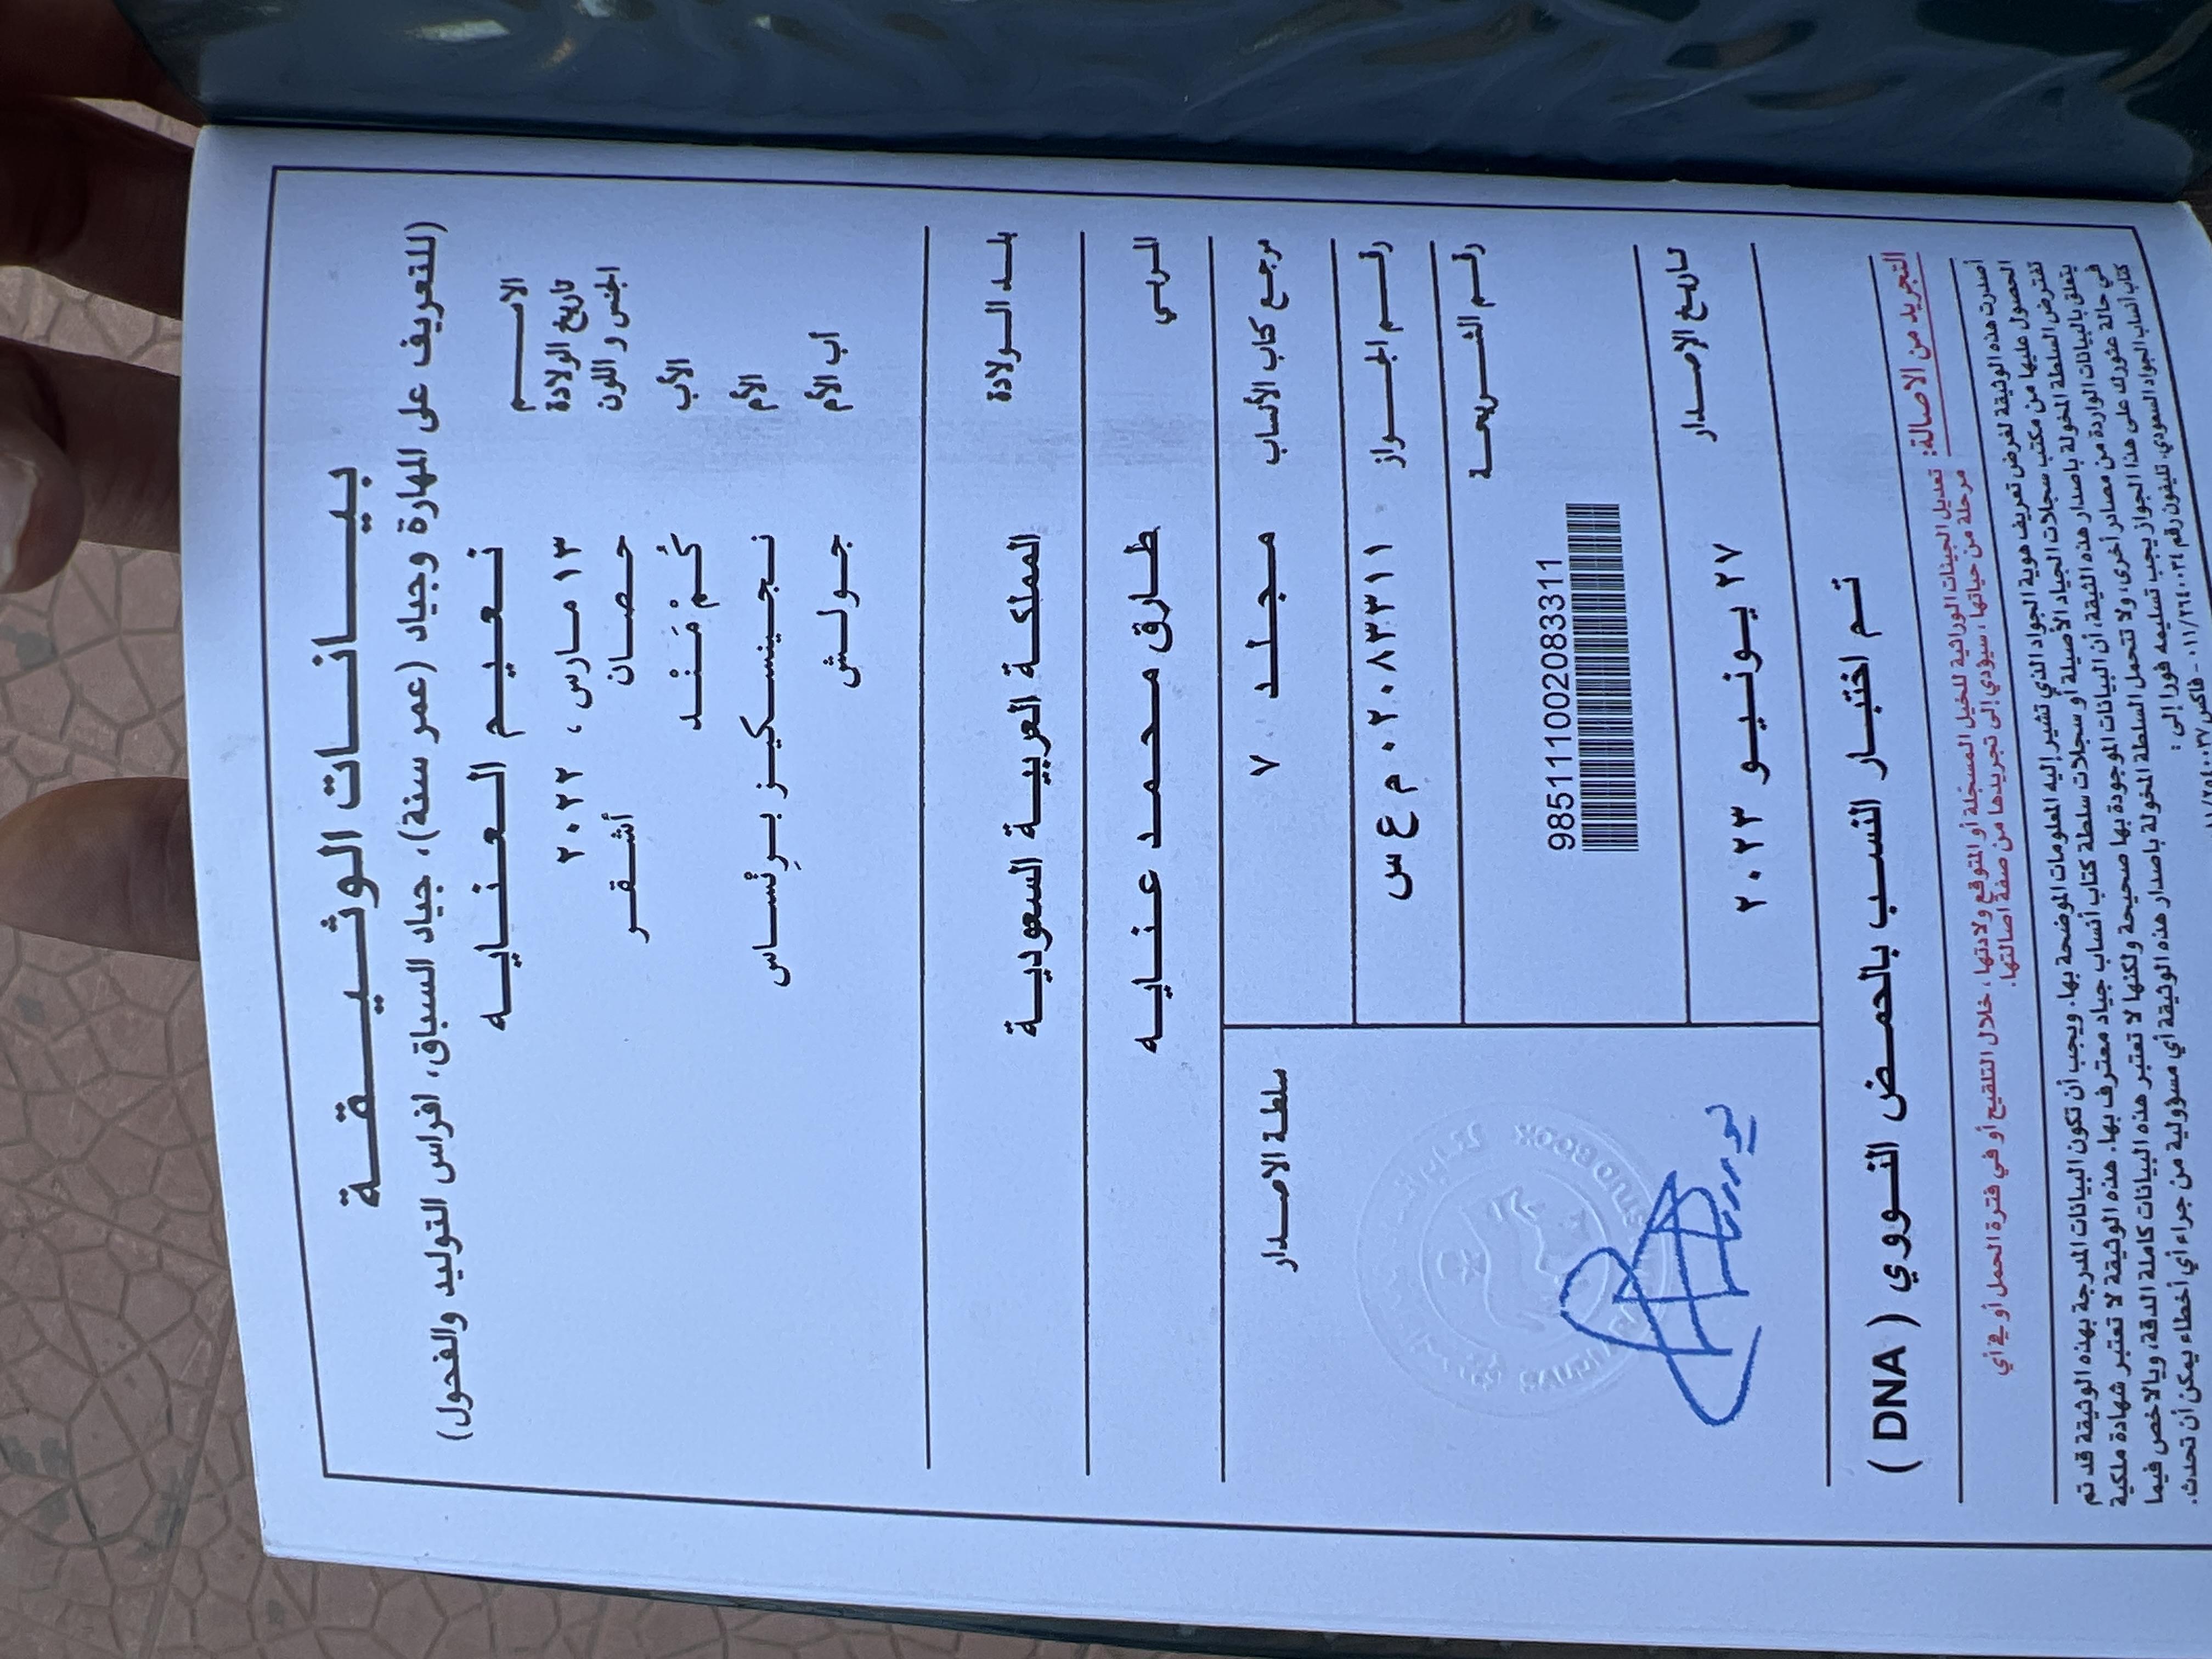 بيانات الوثيقة
(للتعريف على المهارة وجياد (عمر سنة)، جياد السباق، افراس التوليد والفحول)
الاسم نعيم العنايه
تاريخ الولادة ١٣ مارس، ٢٠٢٢
الجنس و اللون حصان أشقر
الأب كُمْ مَنْد
الأم نجينسكيز برنْساس
أب الأم جولش
بلد الولادة المملكة العربية السعودية
المربي طارق محمد عنايه
مرجع كتاب الأنساب مجلد ٧
سلطة الاصدار
رقم الجواز ٠٢٠٨٣٣١١ م ع س
رقم الشريحة
985111002083311
تاريخ الإصدار ٢٧ يونيو ٢٠٢٣
تم اختبار النسب بالحمض النووي ( DNA )
التجريد من الاصالة: تعديل الجينات الوراثية للخيل المسجلة أو المتوقع ولادتها، خلال التلقيح أو في فترة الحمل أو في أي
مرحلة من حياتها، سيؤدي إلى تجريدها من صفة اصالتها.
أصدرت هذه الوثيقة لغرض تعريف هوية الجواد الذي تشير إليه المعلومات الموضحة بها. ويجب أن تكون البيانات المدرجة بهذه الوثيقة قد تم
الحصول عليها من مكتب سجلات الجياد الأصيلة أو سجلات سلطة كتاب أنساب جياد معترف بها. هذه الوثيقة لا تعتبر شهادة ملكية
تفترض السلطة المخولة باصدار هذه الثيقة، أن البيانات الموجودة بها صحيحة ولكنها لا تعتبر هذه البيانات كاملة الدقة، وبالاخص فيما
يتعلق بالبيانات الواردة من مصادر أخرى، ولا تتحمل السلطة المخولة باصدار هذه الوثيقة أي مسؤولية من جراء أي أخطاء يمكن أن تحدث.
في حالة عثورك على هذا الجواز يجب تسليمه فورا إلى :
كتاب أنساب الجواد السعودي، تليفون رقم